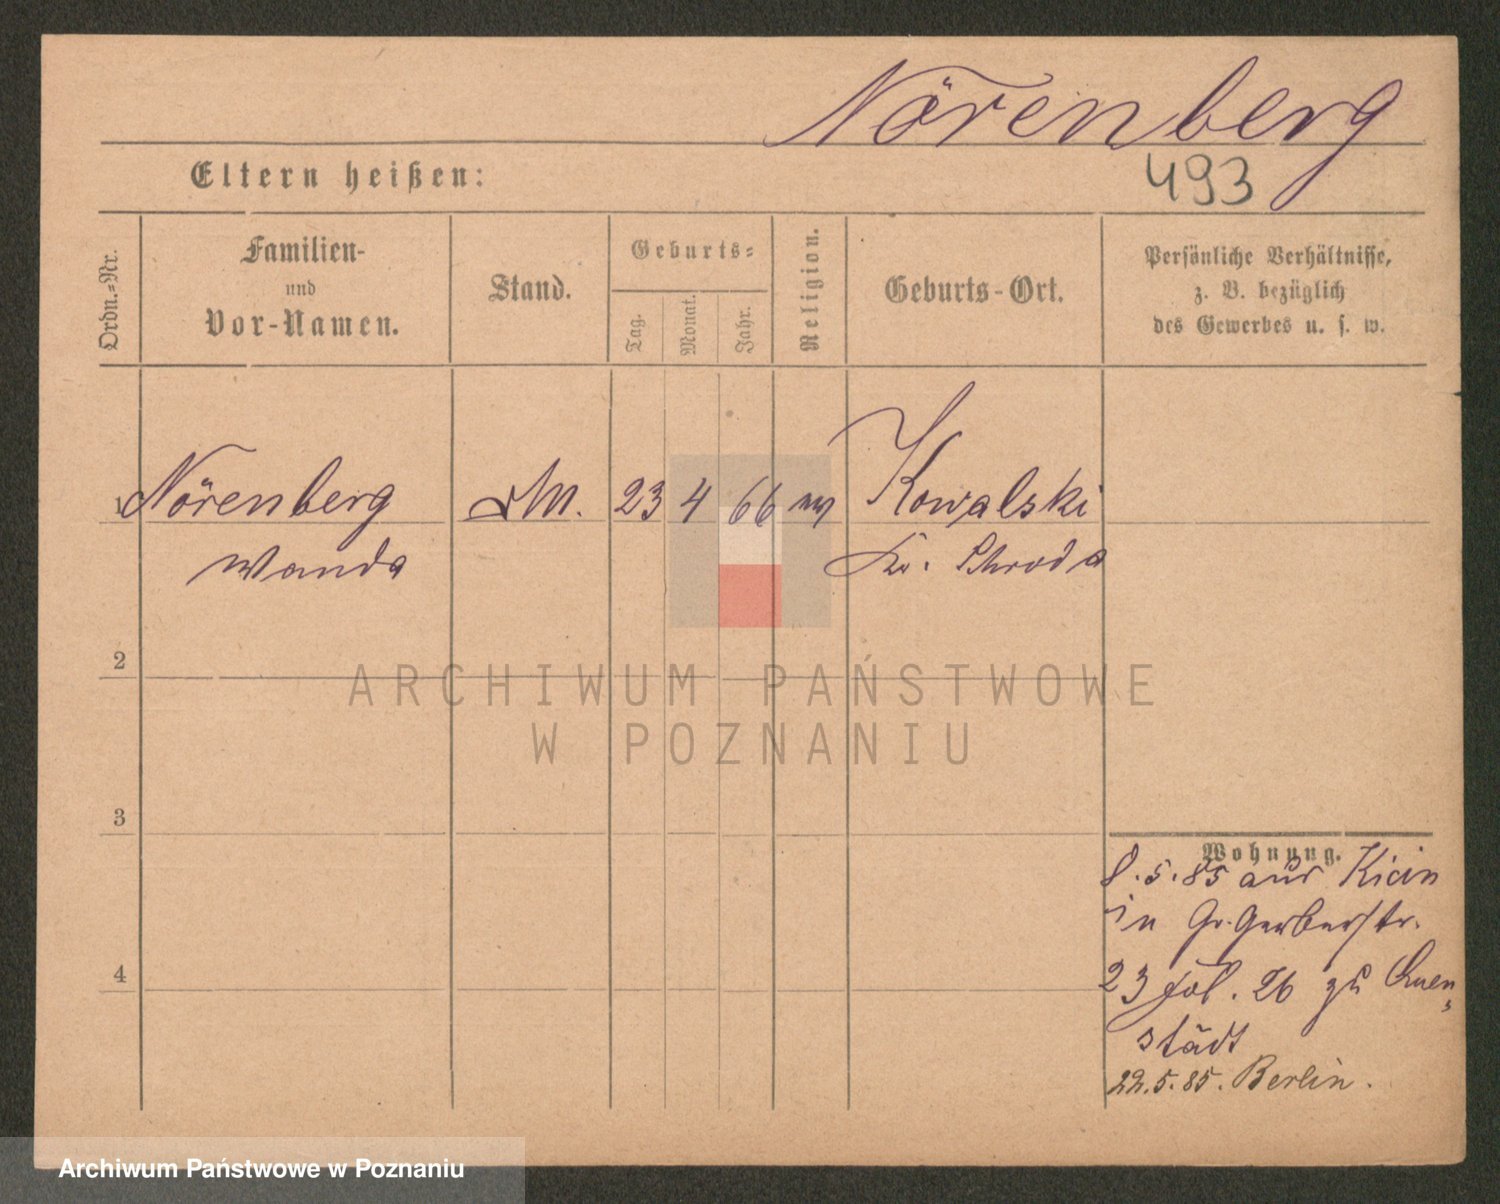 Nörenberg
Eltern heißen:
493
Ordn.-Nr.
Familien-
und
Vor-Namen.
Stand.
Geburts-
Tag.
Monat.
Jahr.
Religion.
Geburts-Ort.
Persönliche Verhältnisse,
z. B. bezüglich
des Gewerbes u. s. w.
1 Nörenberg
Wanda
23 4 66
Kowalski
Kr. Schroda
2
3
4
ARCHIWUM PAŃSTWOWE
W POZNANIU
Wohnung.
8.5.85 aus Kicin
in Gr. Gerberstr.
23 fol. 26 zu
städt
22.5.85. Berlin.
Archiwum Państwowe w Poznaniu